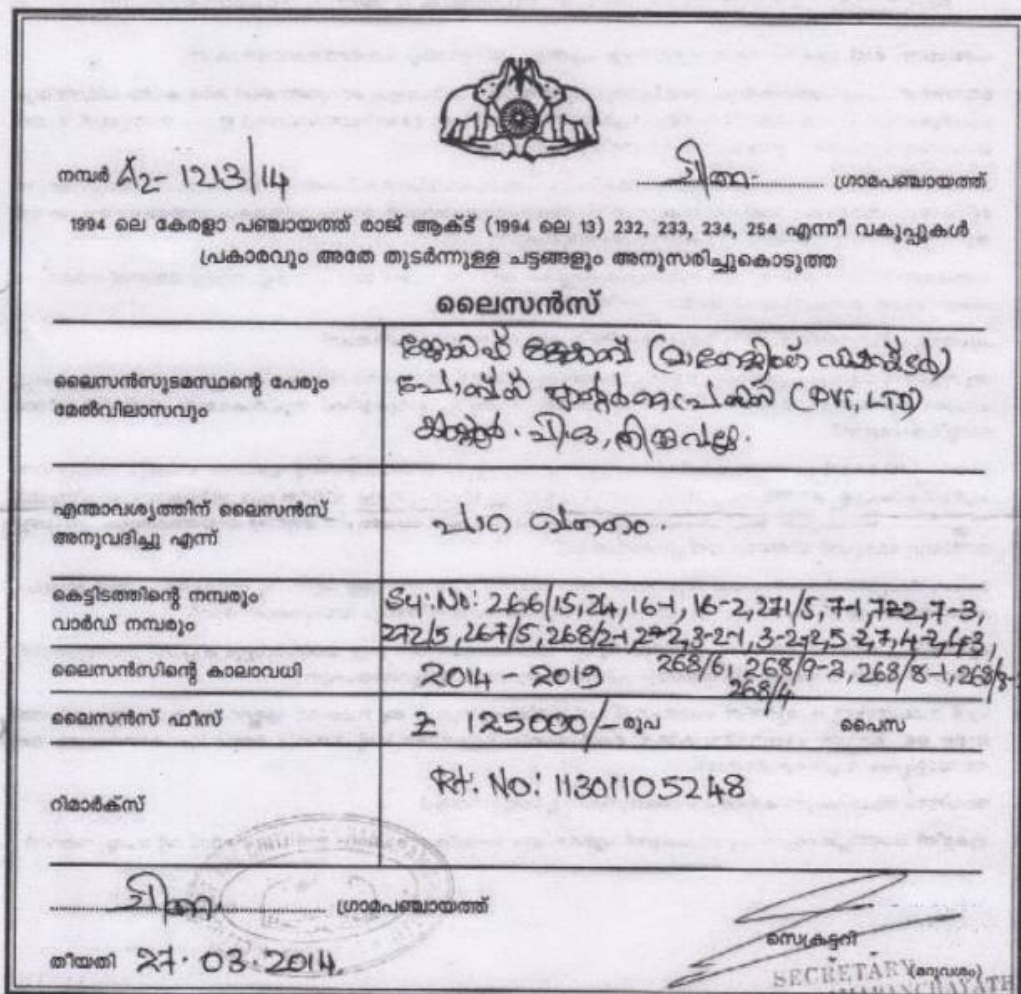 നമ്പർ A2-1213/14
ചിതറ ഗ്രാമപഞ്ചായത്ത്
1994 ലെ കേരളാ പഞ്ചായത്ത് രാജ് ആക്ട് (1994 ലെ 13) 232, 233, 234, 254 എന്നീ വകുപ്പുകൾ
പ്രകാരവും അതേ തുടർന്നുള്ള ചട്ടങ്ങളും അനുസരിച്ചുകൊടുത്ത
ലൈസൻസ്
ലൈസൻസുടമസ്ഥന്റെ പേരും
മേൽവിലാസവും
ജോസഫ് ജേക്കബ് (മാനേജിംഗ് ഡയറക്ടർ)
എന്റർപ്രൈസസ് (PVT. LTD)
പി.ഒ, തിരുവല്ല.
എന്താവശ്യത്തിന് ലൈസൻസ്
അനുവദിച്ചു എന്ന്
പാറ ഖനനം.
കെട്ടിടത്തിന്റെ നമ്പരും
വാർഡ് നമ്പരും
Sy: No: 266/15, 24, 16-1, 16-2, 271/5, 7-1, 7-3,
272/5, 267/5, 268/2-1, 3-2-1, 3-2-2, 5-2, 7, 4-2,
268/6, 268/9-2, 268/8-1,
268/4
ലൈസൻസിന്റെ കാലാവധി
2014 - 2019
ലൈസൻസ് ഫീസ്
125000/ രൂപ പൈസ
റിമാർക്സ്
Rt: No: 113011105248
ചിതറ ഗ്രാമപഞ്ചായത്ത്
തീയതി 27.03.2014.
സെക്രട്ടറി
(മറുവശം)
SECRETARY